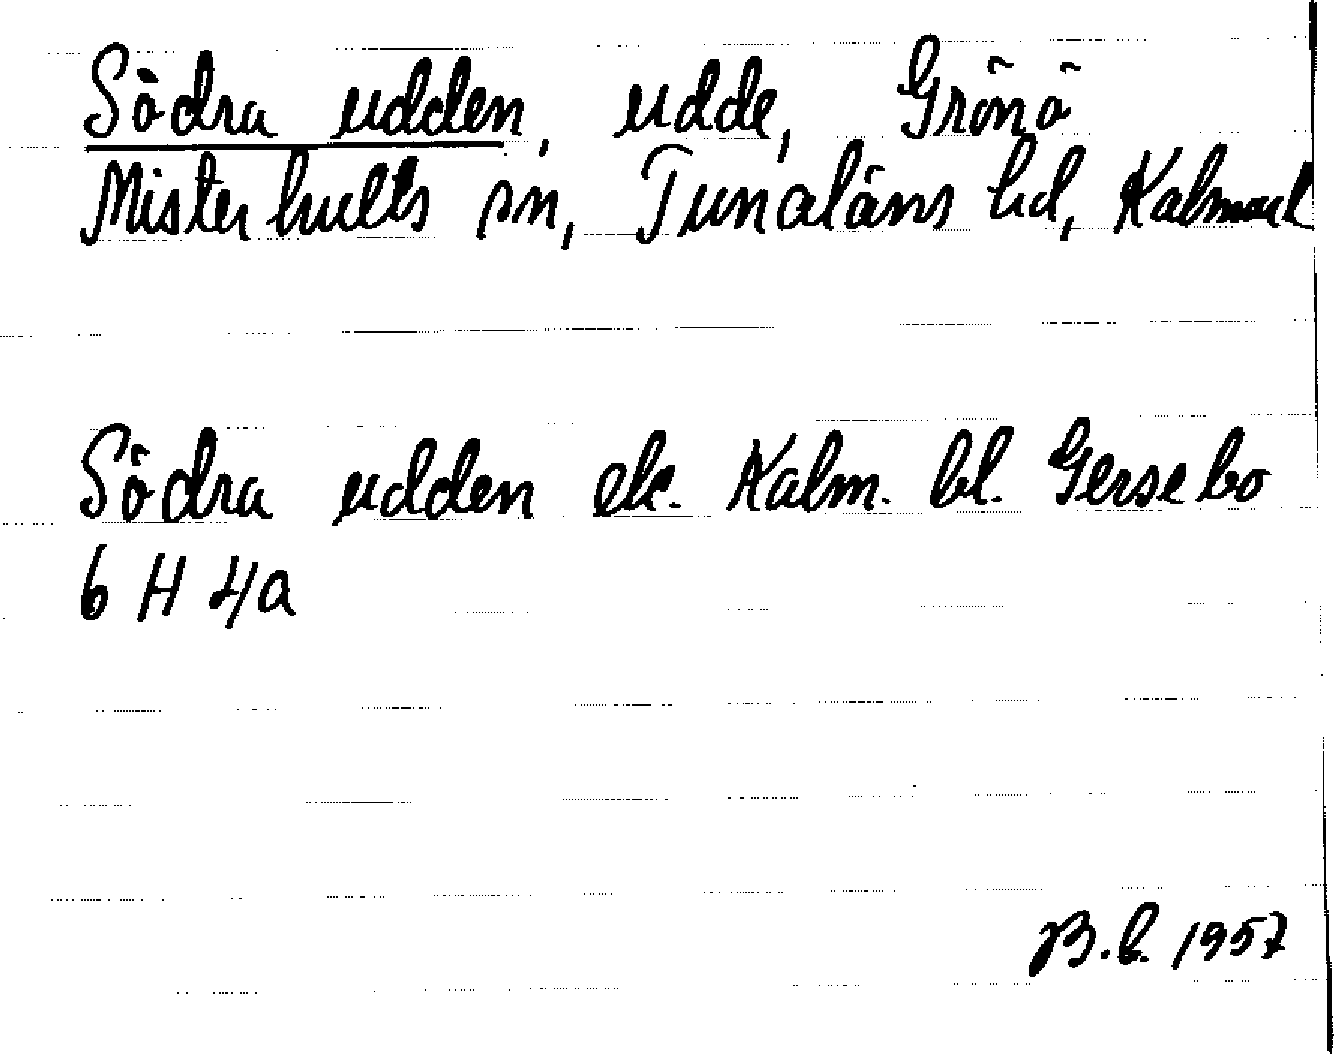 Södra udden, udde, Grönö
Misterhults sn, Tunaläns hd, Kalmar l
Södra udden ek. Kalm. bl. Gersebo
6 H 4a
B.l. 1957